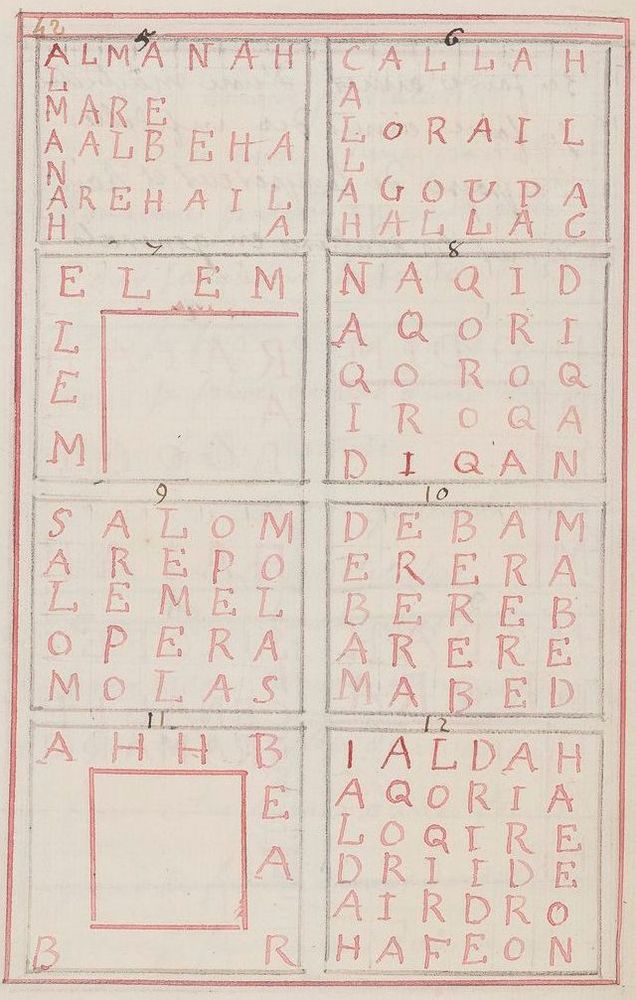 42
5
ALMANAH
L
MARE
AALBEHA
N
AREHAIL
H A
6
CALLAH
A
LORAIL
L
AGOUPA
HALLAC
7
ELEM
L
E
M
8
NAQID
AQORI
QOROQ
IROQA
DIQAN
9
SALOM
AREPO
LEMEL
OPERA
MOLAS
10
DEBAM
ERERA
BEREB
ARERE
MABED
11
AHHB
E
A
B R
12
IALDAH
AQORIA
LOQIRE
DRIIDE
AIRDRO
HAFEON